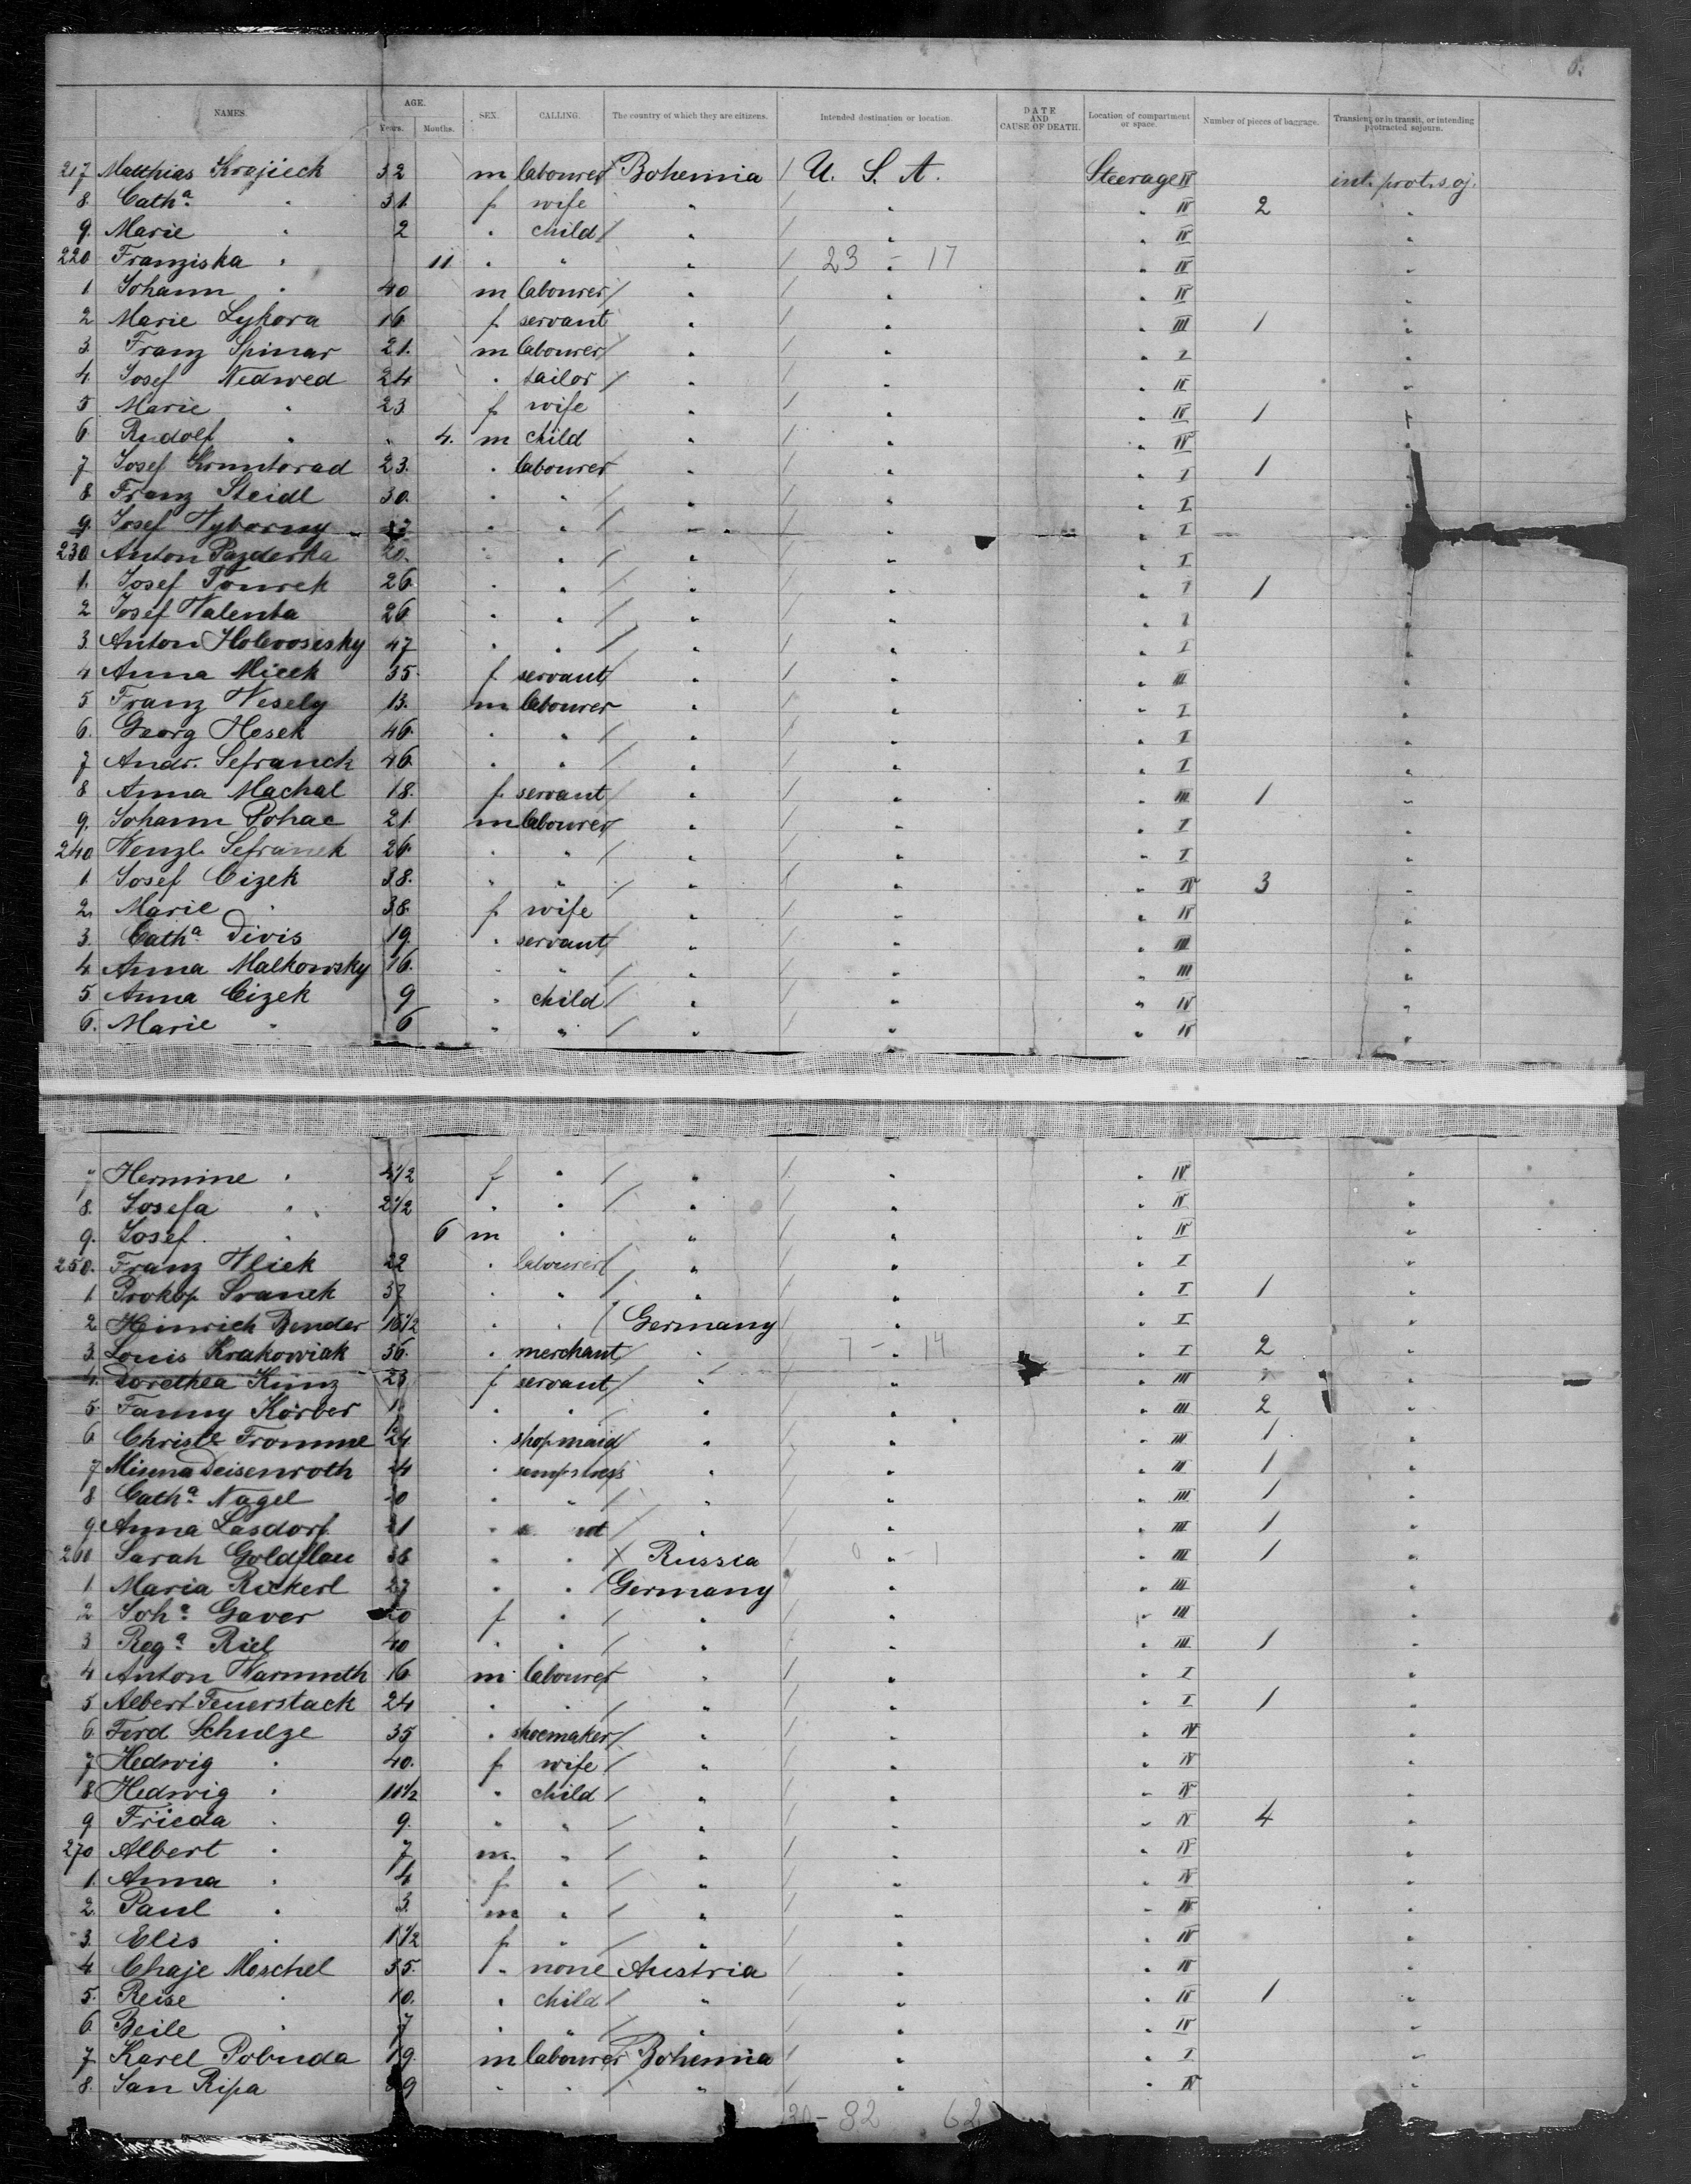 6.
NAMES. AGE. Years. Months. SEX. CALLING. The country of which they are citizens. Intended destination or location. DATE AND CAUSE OF DEATH. Location of compartment or space. Number of pieces of baggage. Transient, or in transit, or intending protracted sojourn.
217 Matthias Krajicek 32 m labourer Bohemia / U. S. A. Steerage IV int. prot. soj.
8. Catha " 31. f wife " / " " IV 2 "
9. Marie " 2 " child / " / " " IV "
220 Franziska " 11. " " " / 23 - 17 " IV "
1 Johann " 40 m labourer / " / " " IV "
2 Marie Sykora 16 f servant " / " " III 1 "
3. Franz Spinar 21. m labourer / " / " " I "
4. Josef Nedwed 24 " tailor / " / " " IV "
5 Marie " 23 f wife " / " " IV 1 "
6 Rudolf " " 4. m child " / " " IV "
7 Josef Gruntorad 23. " labourer " / " " I 1 "
8. Franz Steidl 30. " " / " / " " I "
9. Josef Wyborny " " / " / " " I
230 Anton Pazderka 20. " " / " / " " I
1. Josef 26 " " / " / " " I 1 "
2 Josef Valenta 26 " " / " / " " I "
3. Anton 47 " " / " / " " I "
4 Anna Micek 35 f servant / " / " " III "
5 Franz Wesely 13. m labourer " / " " I "
6. Georg Hosek 46. " " / " / " " I "
7 Andr. Sefranek 46 " " / " / " " I "
8 Anna Machal 18. f servant / " / " " III 1 "
9. Johann Pohac 21. m labourer " / " " I "
240 Wenzl. Sefranek 26 " " / " / " " I "
1. Josef Cizek 38. " " / " / " " IV 3 "
2. Marie " 38. f wife " / " " IV "
3. Catha Divis 19. " servant / " / " " III "
4. Anna Malkowsky 16. " " / " / " " III "
5. Anna Cizek 9 " child / " / " " IV "
6. Marie " 6 " " / " / " " IV "
7 Hermine " 4 1/2 f " / " / " " IV "
8. Josefa " 2 1/2 " " / " / " " IV "
9. Josef " 6 m " " / " " IV "
250. Franz Vlcek 22 " labourer / " / " " I "
1 Prokop Sranek 37 " " / " / " " I 1 "
2 Heinrich Bender 16 1/2 " " / Germany / " " I "
3. Louis Krakowiak 36. " merchant / " 7 - 14 " I 2 "
4. Dorethea Kunz 23 f servant / " / " " III "
5. Fanny Körber " " " / " " III 2 "
6 Christe Fromme 24 " shopmaid " / " " III 1 "
7 Minna Deisenroth 24 " sempstress " / " " III 1 "
8 Catha Nagel " " / " / " " III 1 "
9. Anna Lasdorf " / " / " " III 1 "
260 Sarah Goldflau 38 " " / Russia 0 - 1 " III 1 "
1 Maria Rickerl 27 " " / Germany / " " III "
2 Joha Gaver 20 f " / " / " " III "
3 Rega Riel 40 " " / " / " " III 1 "
4 Anton Warmuth 16 m labourer " / " " I "
5 Albert Feuerstack 24 " " / " / " " I 1 "
6 Ferd Schulze 35 " shoemaker / " / " " IV "
7 Hedwig " 40. f wife / " / " " IV "
8 Hedwig " 10 1/2 " child / " / " " IV "
9 Frieda " 9. " " / " / " " IV 4 "
270 Albert " 7 m " / " / " " IV "
1. Anna " 4 f " / " / " " IV "
2. Paul " 3. m " / " / " " IV "
3. Elis " 1 1/2 f " / " / " " IV "
4 Chaje Moschel 35. " none Austria / " " IV "
5. Reise " 10. " child / " / " " IV 1 "
6 Beile " 7 " " / " / " " IV "
7. Karel Pobuda 19. m labourer Bohemia / " " I "
8. Jan Ripa " " / " / " " IV "
82 62